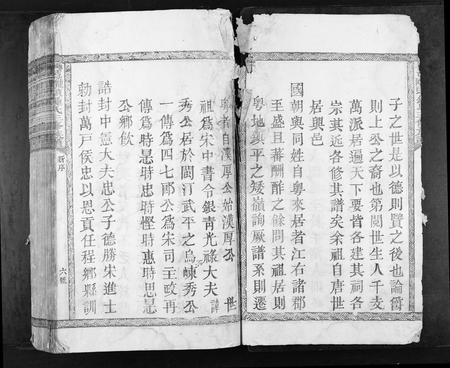 子之世是以德則賢之後也論爵
則上公之裔也第閱世生人千支
萬派居遍天下要皆各建其祠各
宗其近各修其譜矣余祖自唐世
居興邑
國朝與同姓自粵來居者江右諸郡
至盛且蕃酬酢之餘問其祖居則
粵地鎮平之疑嶺詢厥譜系則遷
粵者自漢厚公始漢厚公世
祖為宋中書令銀青光祿大夫諱
秀公居於閩汀武平之烏崠秀公
一傳為四七郎公為宋司主政再
傳為時昷時忠時慳時惠時思思
公鄉飲
誥封中憲大夫忠公子德勝宋進士
勅封萬戶侯忠以恩貢任程鄉縣訓
新序
六